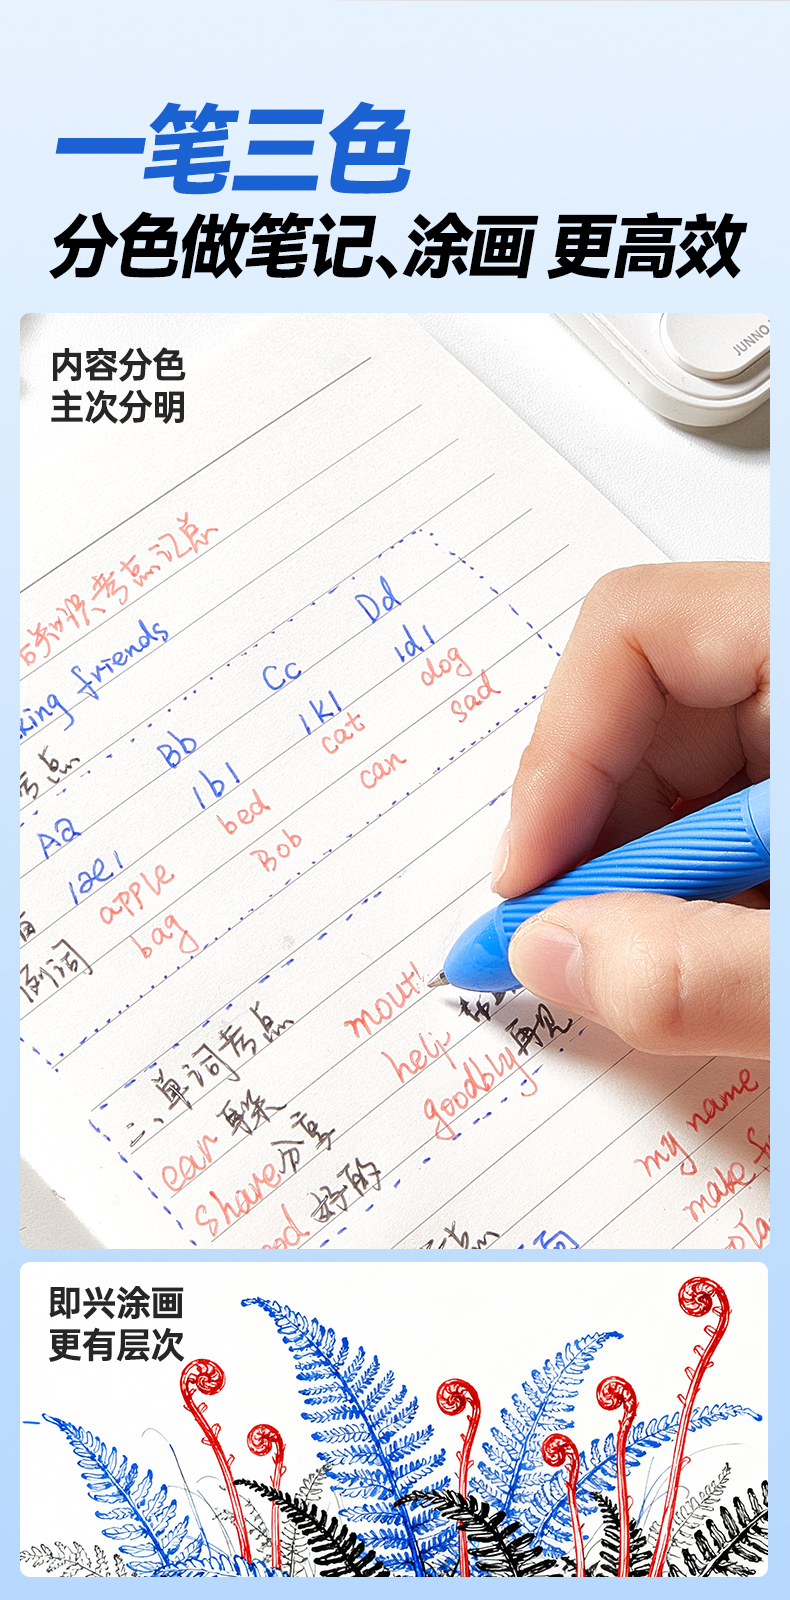 一笔三色
分色做笔记、涂画 更高效
内容分色
主次分明
JUNNO
考点记总
king friends
考点
Aa Bb Cc Dd
/æ/ /b/ /k/ /d/
apple bed cat dog
bag Bob can sad
例词
二、单词考点
mouth
ear 耳朵
help 帮
share 分享
goodbye 再见
好的
my name
make
即兴涂画
更有层次